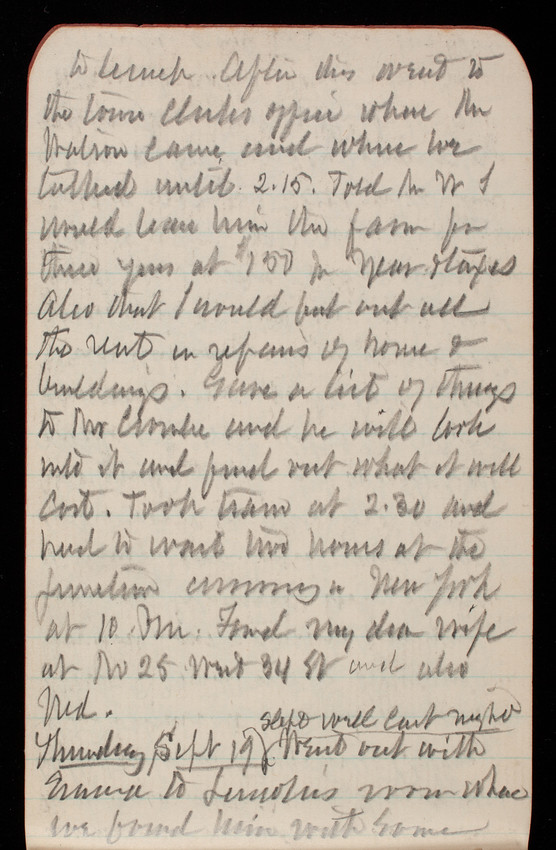 to lunch. After this went to
the town Clerks office where Mr
Watson came and where we
talked until 2.15. Told Mr W I
would lease him the farm for
three years at $150 per year & taxes
Also that I would put out all
the rent in repairs of home &
buildings. Gave a list of things
to Mr Crombie and he will look
into it and find out what it will
cost. Took train at 2.30 and
had to wait two hours at the
junction arriving in New York
at 10 Pm. Found my dear wife
at No 25 West 34 St and also
Ned.
slept well last night
Thursday Sept 19 Went out with
Emma to room where
we found him with some